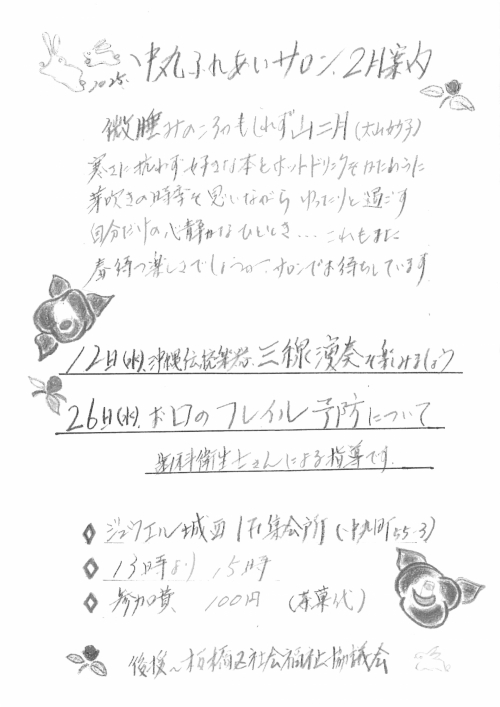 2025. 中丸ふれあいサロン、2月案内
微睡みのころのもしれず山二月 (太山
寒さに抗わず好きな本とホットドリンクをかたわらに
芽吹きの時季を思いながら ゆったりと過ごす
自分だけの心静かなひととき... これもまた
春待つ楽しさでしょうか〜、サロンでお待ちしています
12日(水)、沖縄伝統楽器、三線演奏を楽しみましょう
26日(水)、お口のフレイル予防について
歯科衛生士さんによる指導です。
◇ ジュウエル城西 1F集会所 (中丸町55-3)
◇ 13時より 15時
◇ 参加費 100円 (茶菓代)
後援〜板橋区社会福祉協議会